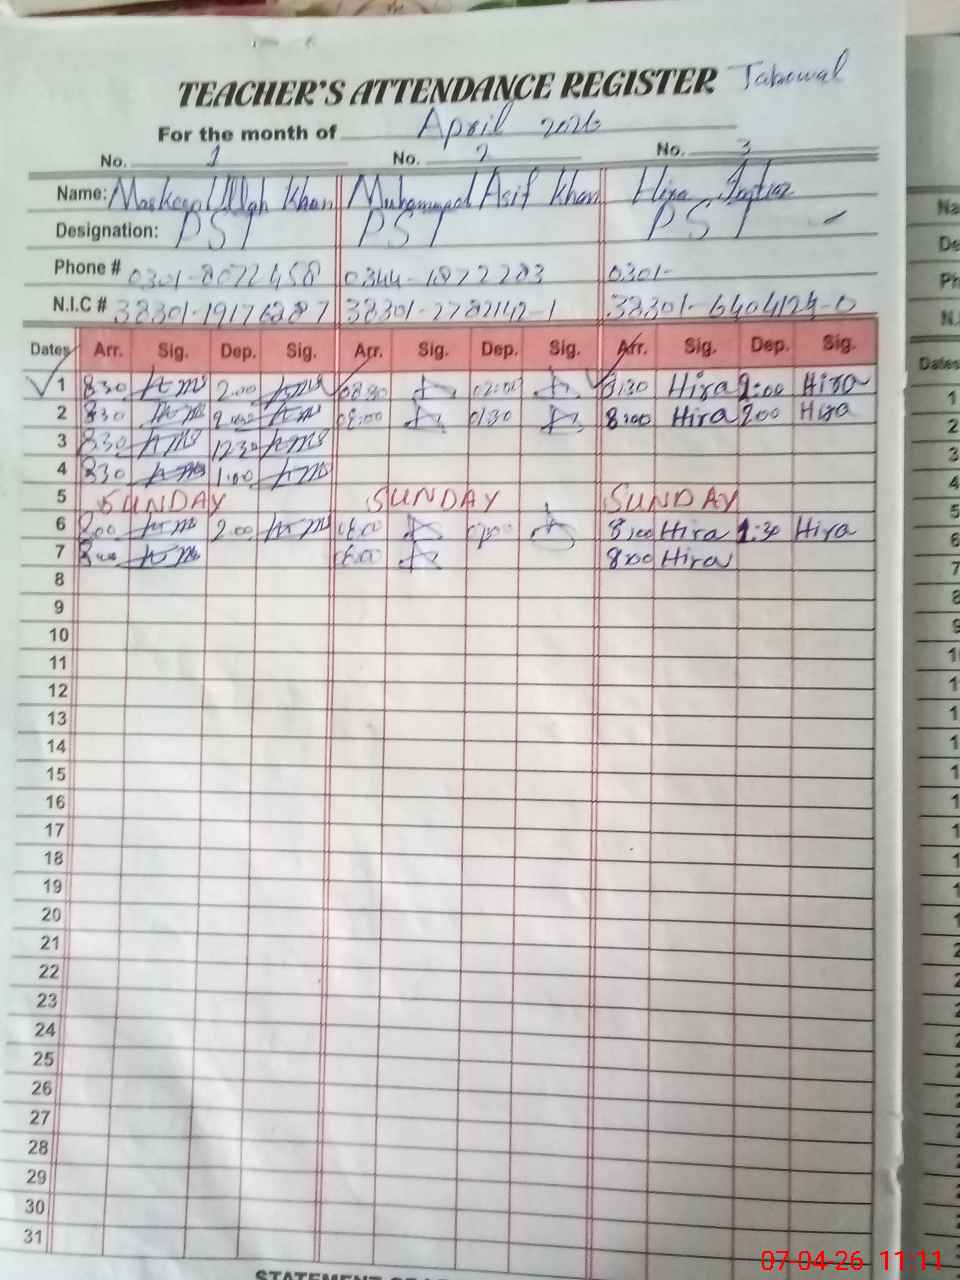 TEACHER'S ATTENDANCE REGISTER
For the month of April 2026
No. 1 No. 2 No. 3
Name: Maskeen Ullah Khan Muhammad Asif Khan Hira
Designation: PST PST PST
Phone # 0301-8072458 0344-1872283 0301-
N.I.C # 38301-19176287 38301-2782142-1 38301-6404124-0
Dates Arr. Sig. Dep. Sig. Arr. Sig. Dep. Sig. Arr. Sig. Dep. Sig.
1 830 2.00 08:30 02:00 8:30 Hira 2:00 Hira
2 830 2.00 08:00 01:30 8:00 Hira 200 Hira
3 830 1230
4 830 1.00
5 SUNDAY SUNDAY SUNDAY
6 800 2.00 1:30 8:00 Hira 1:30 Hira
7 800 Hira
8
9
10
11
12
13
14
15
16
17
18
19
20
21
22
23
24
25
26
27
28
29
30
31
07-04-26 11:11